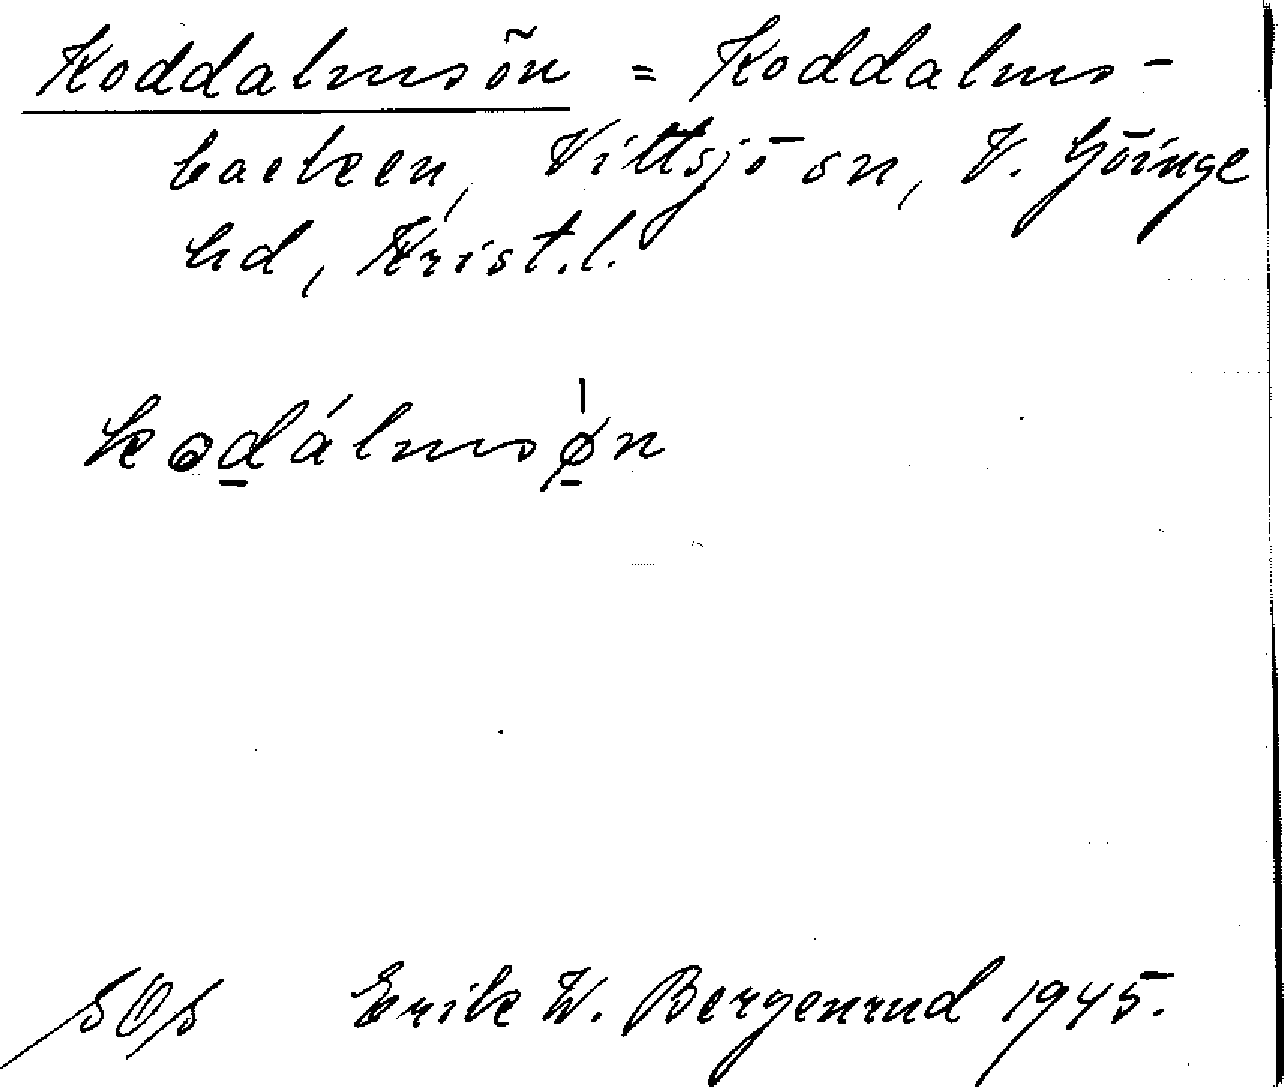 Koddalmsön = Koddalms-
backen, Vittsjö sn, V. Göinge
hd, Krist.l.
kodálmsøn
SOS Erik W. Bergenrud 1945.